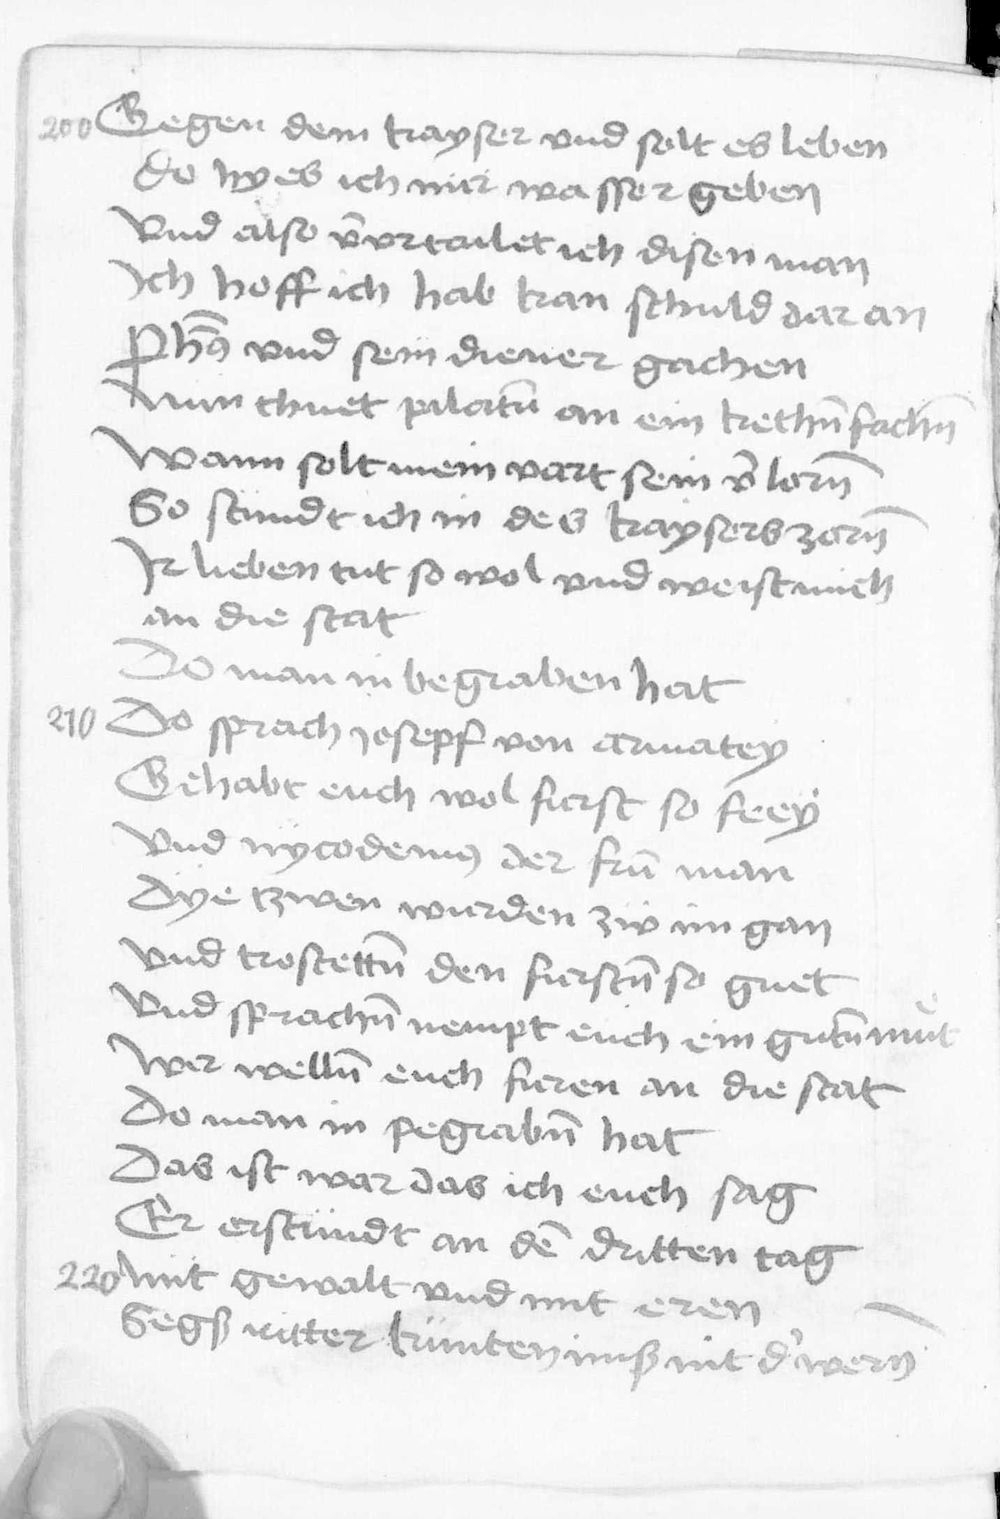 200 Gegen dem kayser vnd solt es leben
do hyes ich mir wasser geben
vnd also v̄vrtailet ich disen man
Ich hoff ich hab kan schuld dar an
vnd sein diener gachen
Nun thuet pilatū an ein kethn̄ fachn̄
Wann solt mein vart sein v̄lorn̄
So stundt ich in des kaysers zorn̄
Ir lieben tut so wol vnd weist mich
an die stat
Do man in begraben hat
210 Do sprach josepf von armatey
Gehabt euch wol fierst so freÿ
vnd nycodemꝰ der frū man
Dÿe tzwen wurden zw im gan
vnd trostettn̄ den fierstn̄ so guet
vnd sprachn̄ nempt euch ein gutn̄ muͤt
Wir welln̄ euch fieren an die stat
Do man in pegrabn̄ hat
Das ist war das ich euch sag
Er erstundt an dē dritten tag
220 Mit gewalt vnd mit eren
Segß ritter kunten imß nit d'wern̄